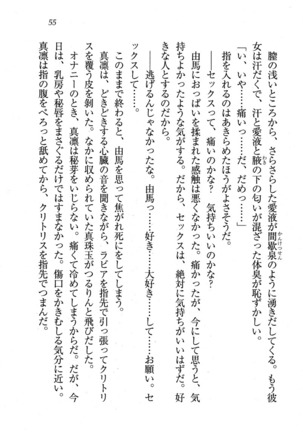 55
膣の浅いところから、さらさらした愛液が間歇泉のように湧きだしてくる。もう彼
女は汗だくで、汗と愛液と腋の下の匂いが混ざった体臭が恥ずかしい。
「い、いや……痛いっ……だ、だめっ……」
指を入れるのはあきらめたほうがよさそうだ。
——セックスって、痛いのかな？　気持ちいいのかな？
由馬におっぱいを揉まれた感触は悪くなかった。痛かったが、今にして思うと、気
持ちよかったような気がする。だから、セックスは、絶対に気持ちがいいはずだ。好
きな人とするのだから。
——逃げるんじゃなかったな。由馬っ……好き……大好き……して……お願い。セ
ックスして……。
このままで終わると、由馬を思って焦がれ死にをしてしまう。
真凛は、どきどきする心臓の音を聞きながら、ラビアを指先で引っ張ってクリトリ
スを覆う皮を剥いた。なかに収められていた真珠玉がつるりんと飛びだした。
オナニーのとき、真凛は秘芽をいじらない。痛くて冷めてしまうからだ。だが、今
日は、乳房や秘唇をまさぐるだけではすまなかった。傷口をかきむしる気分に近い。
真凛は指の腹をぺろっと舐めてから、クリトリスを指先でつまんだ。